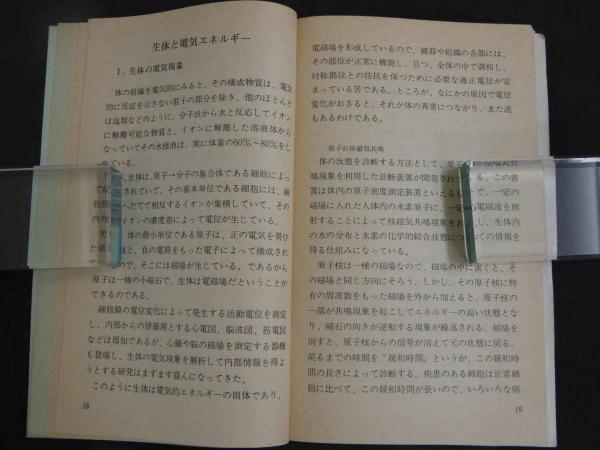 生体と電気エネルギー
1. 生体の電気現象
体の組織を電気的にみると、その構成物質は、電気
的に反応を示さない若干の部分を除き、他のほとんど
は塩類などのように、分子状から水と反応してイオン
に解離可能な物質と、イオンに解離した溶液体から
なっていてその水様液は、実に体重の60%〜80%をし
ている。
生体は原子→分子の集合体である細胞によっ
されていて、その基本単位である細胞には、細
へだてて相反するイオンが集積していて、その
イオンの濃度差によって電位が生じている。
体の最小単位である原子は、正の電気を帯び
と、負の電荷をもった電子によって構成され
ので、そこには磁場が生じている。であるから
原子は一種の小磁石で、生体は電磁場だということが
できるのである。
細胞膜の電位変化によって発生する活動電位を測定
し、内部からの情報源とする心電図、脳波図、筋電図
などは周知であるが、心臓や脳の磁場を測定する器機
も登場し、生体の電気現象を解析して内部情報を得よ
うとする研究はますます盛んになってきた。
このように生体は電気的エネルギーの固体であり、
18
電磁場を形成しているので、臓器や組織の各部には、
その部位が正常に機能し、且つ、全体の中で調和し、
対称部位との拮抗を保つために必要な適正電位が定
まっている筈である。ところが、なにかの原因で電位
変化がおきると、それが体の異常につながり、また逆
もあるわけである。
原子の核磁気共鳴
体の状態を診断する方法として、原子
鳴現象を利用した診断装置が開発され る。この装
置は体内の原子密度測定装置といえる で、一定の
磁場に入れた人体内の水素原子に、一定 電磁波を照
射することによって核磁気共鳴現象をお し、生体内
の水の分布と水素の化学的結合状態につ ての情報を
得る仕組みになっている。
原子核は一種の磁場なので、磁場の中に置くと、そ
の磁場と同じ方向にそろう。しかし、その原子核に特
有の周波数をもった磁場を外から加えると、原子核の
一部が共鳴現象を起こしてエネルギーの高い状態とな
り、磁石の向きが逆転する現象が繰返される。磁場を
消すと、原子核からの信号が消えて元の状態に戻る。
戻るまでの時間を〝緩和時間〟というが、この緩和時
間の長さによって診断する。疾患のある細胞は正常細
胞に比べて、この緩和時間が長いので、いろいろな病
19